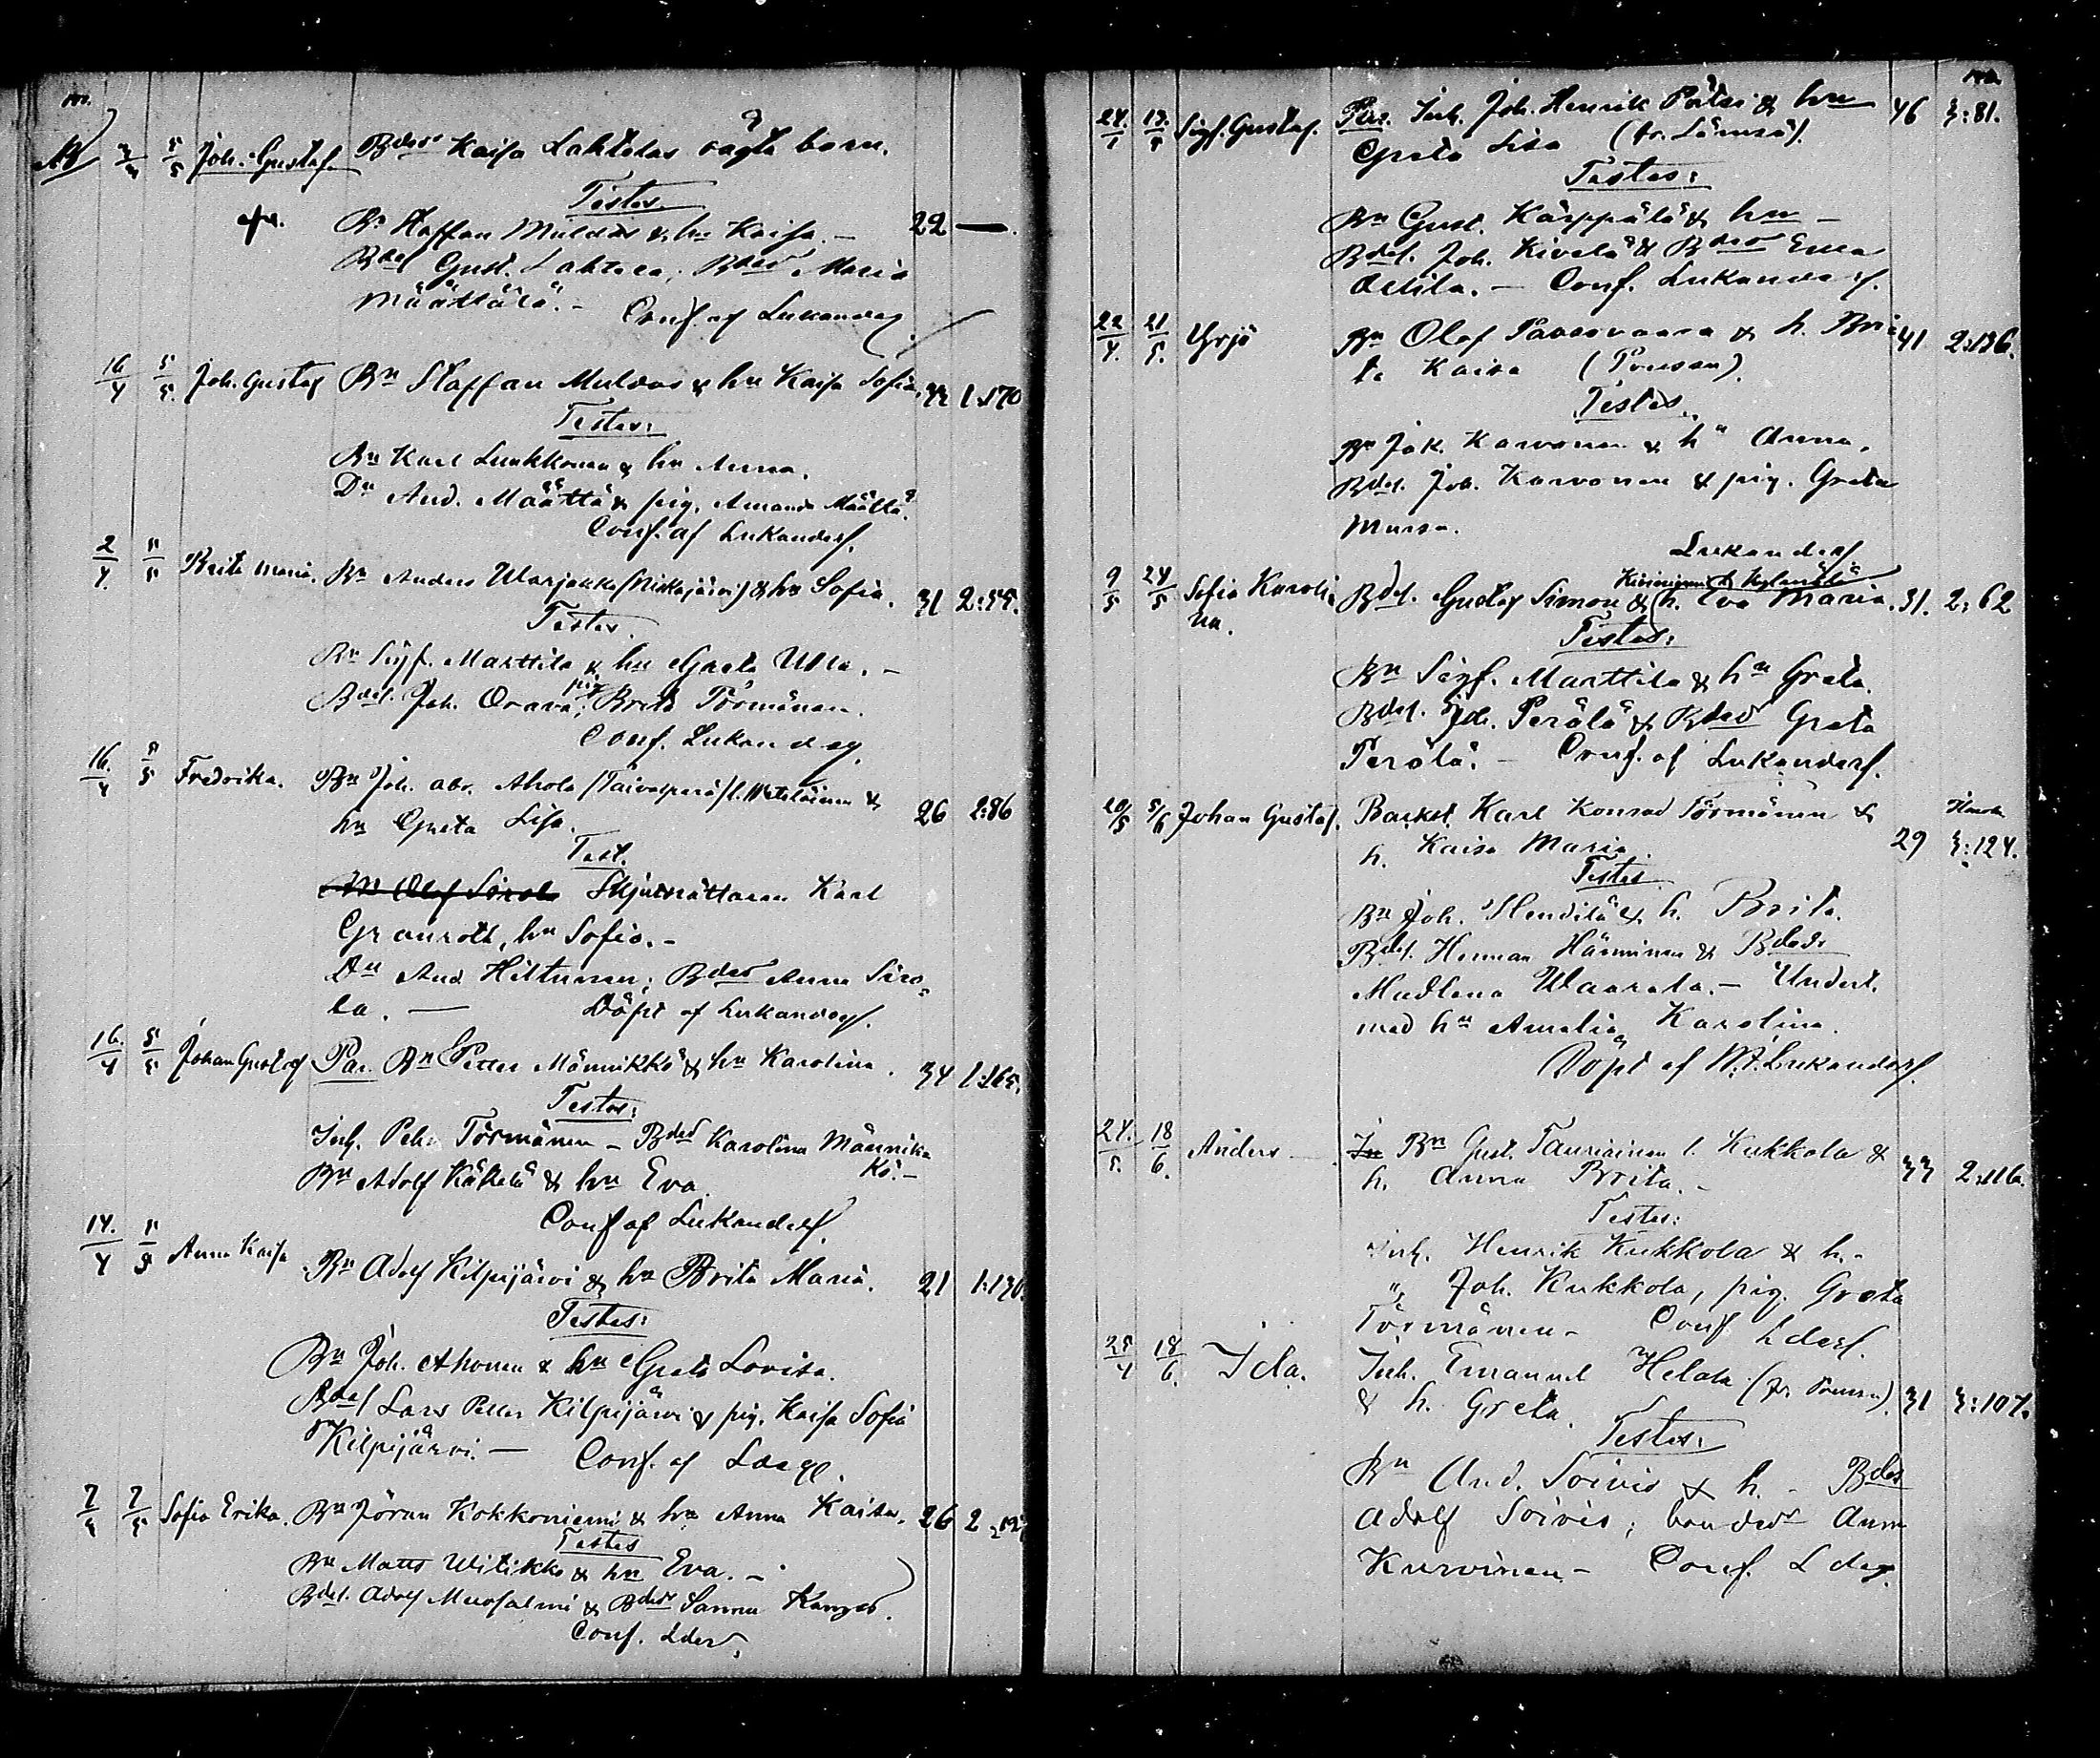 5/5 Joh. Gustaf. Bdr Kaisa Lahtelas oägta barn.
Testes.
Bn Staffan Muldas & hu Kaisa. — 22 —
Bdsl Gust. Lahtela; Bdr Maria
Määttälä. — Conf. af Lukander.
16/4 5/5 Joh. Gustaf Bn Staffan Muldas & hu Kaisa Sofia. 1:170
Testes:
Bn Karl Lunkkonen & hu Anna.
Dn And. Määttä & pig. Amanda Määttä.
Conf. af Lukander.
2/4 5/5 Brita Maria. Bn Anders Warjakka (Niskajärvi) & hu Sofia. 31 2:55.
Testes.
Bn Sigf. Marttila & hu Greta Ulla. —
Bdsl. Joh. Orava; pig. Brita Törmänen.
Conf. Lukander.
16/4 5/5 Fredrika. Bn Joh. Abr. Ahola (Taivalperä) l. & 26 2:86
hu Greta Lisa.
Test.
Bn Olof Sirola Skjutsrättaren Karl
Granroth, hu Sofia. —
Dn And Hiltunen; Bdr Anna Siro-
la. — Döpt af Lukander.
16/4 5/5 Johan Gustaf Par. Bn Petter Männikkö & hu Karolina. 34 1:165.
Testes:
Inh. Pehr Törmänen — Bdr Karolina Männik-
kö. —
Bn Adolf Käkelä & hu Eva.
Conf af Lukander.
14/4 5/5 Anna Kaisa
Bn Adolf Kilpijärvi & hu Brita Maria. 21 1:130.
Testes:
Bn Joh. Ahonen & hu Greta Lovisa.
Bdsl Lars Petter Kilpijärvi & pig. Kaisa Sofia
Kilpijärvi. — Conf. af
7/5 Sofia Erika. Bn Jöran Kokkoniemi & hu Anna Kaisa. 26 2:
Testes
Bn Matts Witikko & hu Eva. —
Bdsl. Adolf Mursalmi & Bdr Sanna Kangas.
Conf. Lder.
Sigf. Gustaf. Par. Inh. Joh. Henrik Pätsi & hu 46 3:81.
Greta Lisa (fr. Lämsä).
Testes:
Bn Gust. Karppälä & hu —
Bdsl. Joh. Kivelä & Bdr Eva
— Conf. Lukander.
22/4. 21/5. Yrjö Bn Olof Paavovaara & h. Bri- 41 2:136.
ta Kaisa (Pousu).
Testes.
Bn Jak. Karvonen & hu Anna.
Bdsl. Joh. Karvonen & pig. Greta
Mursa.
Lukander
9/5 24/5 Sofia Karoli- Bdsl. Gustaf Simon & h. Eva Maria. 31. 2:62
na.
Testes:
Bn Sigf. Marttila & hu Greta.
Bdsl. Joh. Perälä & Bdr Greta
Perälä. — Conf. af Lukander.
20/5 5/6 Johan Gustaf. Backst. Karl Konrad Törmänen &
h. Kaisa Maria. 29 3:124.
Testes
Bn Joh. Hendilä & h. Brita.
Bdsl. Herman Hänninen & Bdr
Madlena Waarala. — Undert.
med hu Amalia Karolina.
Döpt af Lukander.
24/5. 18/6. Anders Bn Gust. Tauriainen l. Kukkola &
h. Anna Brita. — 33 2:116.
Testes:
Inh. Henrik Kukkola & h. —
" Joh. Kukkola, pig. Greta
Törmänen — Conf Lder.
25/4 18/6. Ida. Inh. Emanuel Helala (fr. Pousu).
& h. Greta. 31 3:107.
Testes:
Bn And. Soivio & h. — Bdsl
Adolf Soivio; bondedr Anna
Kurvinen — Conf. Lder.